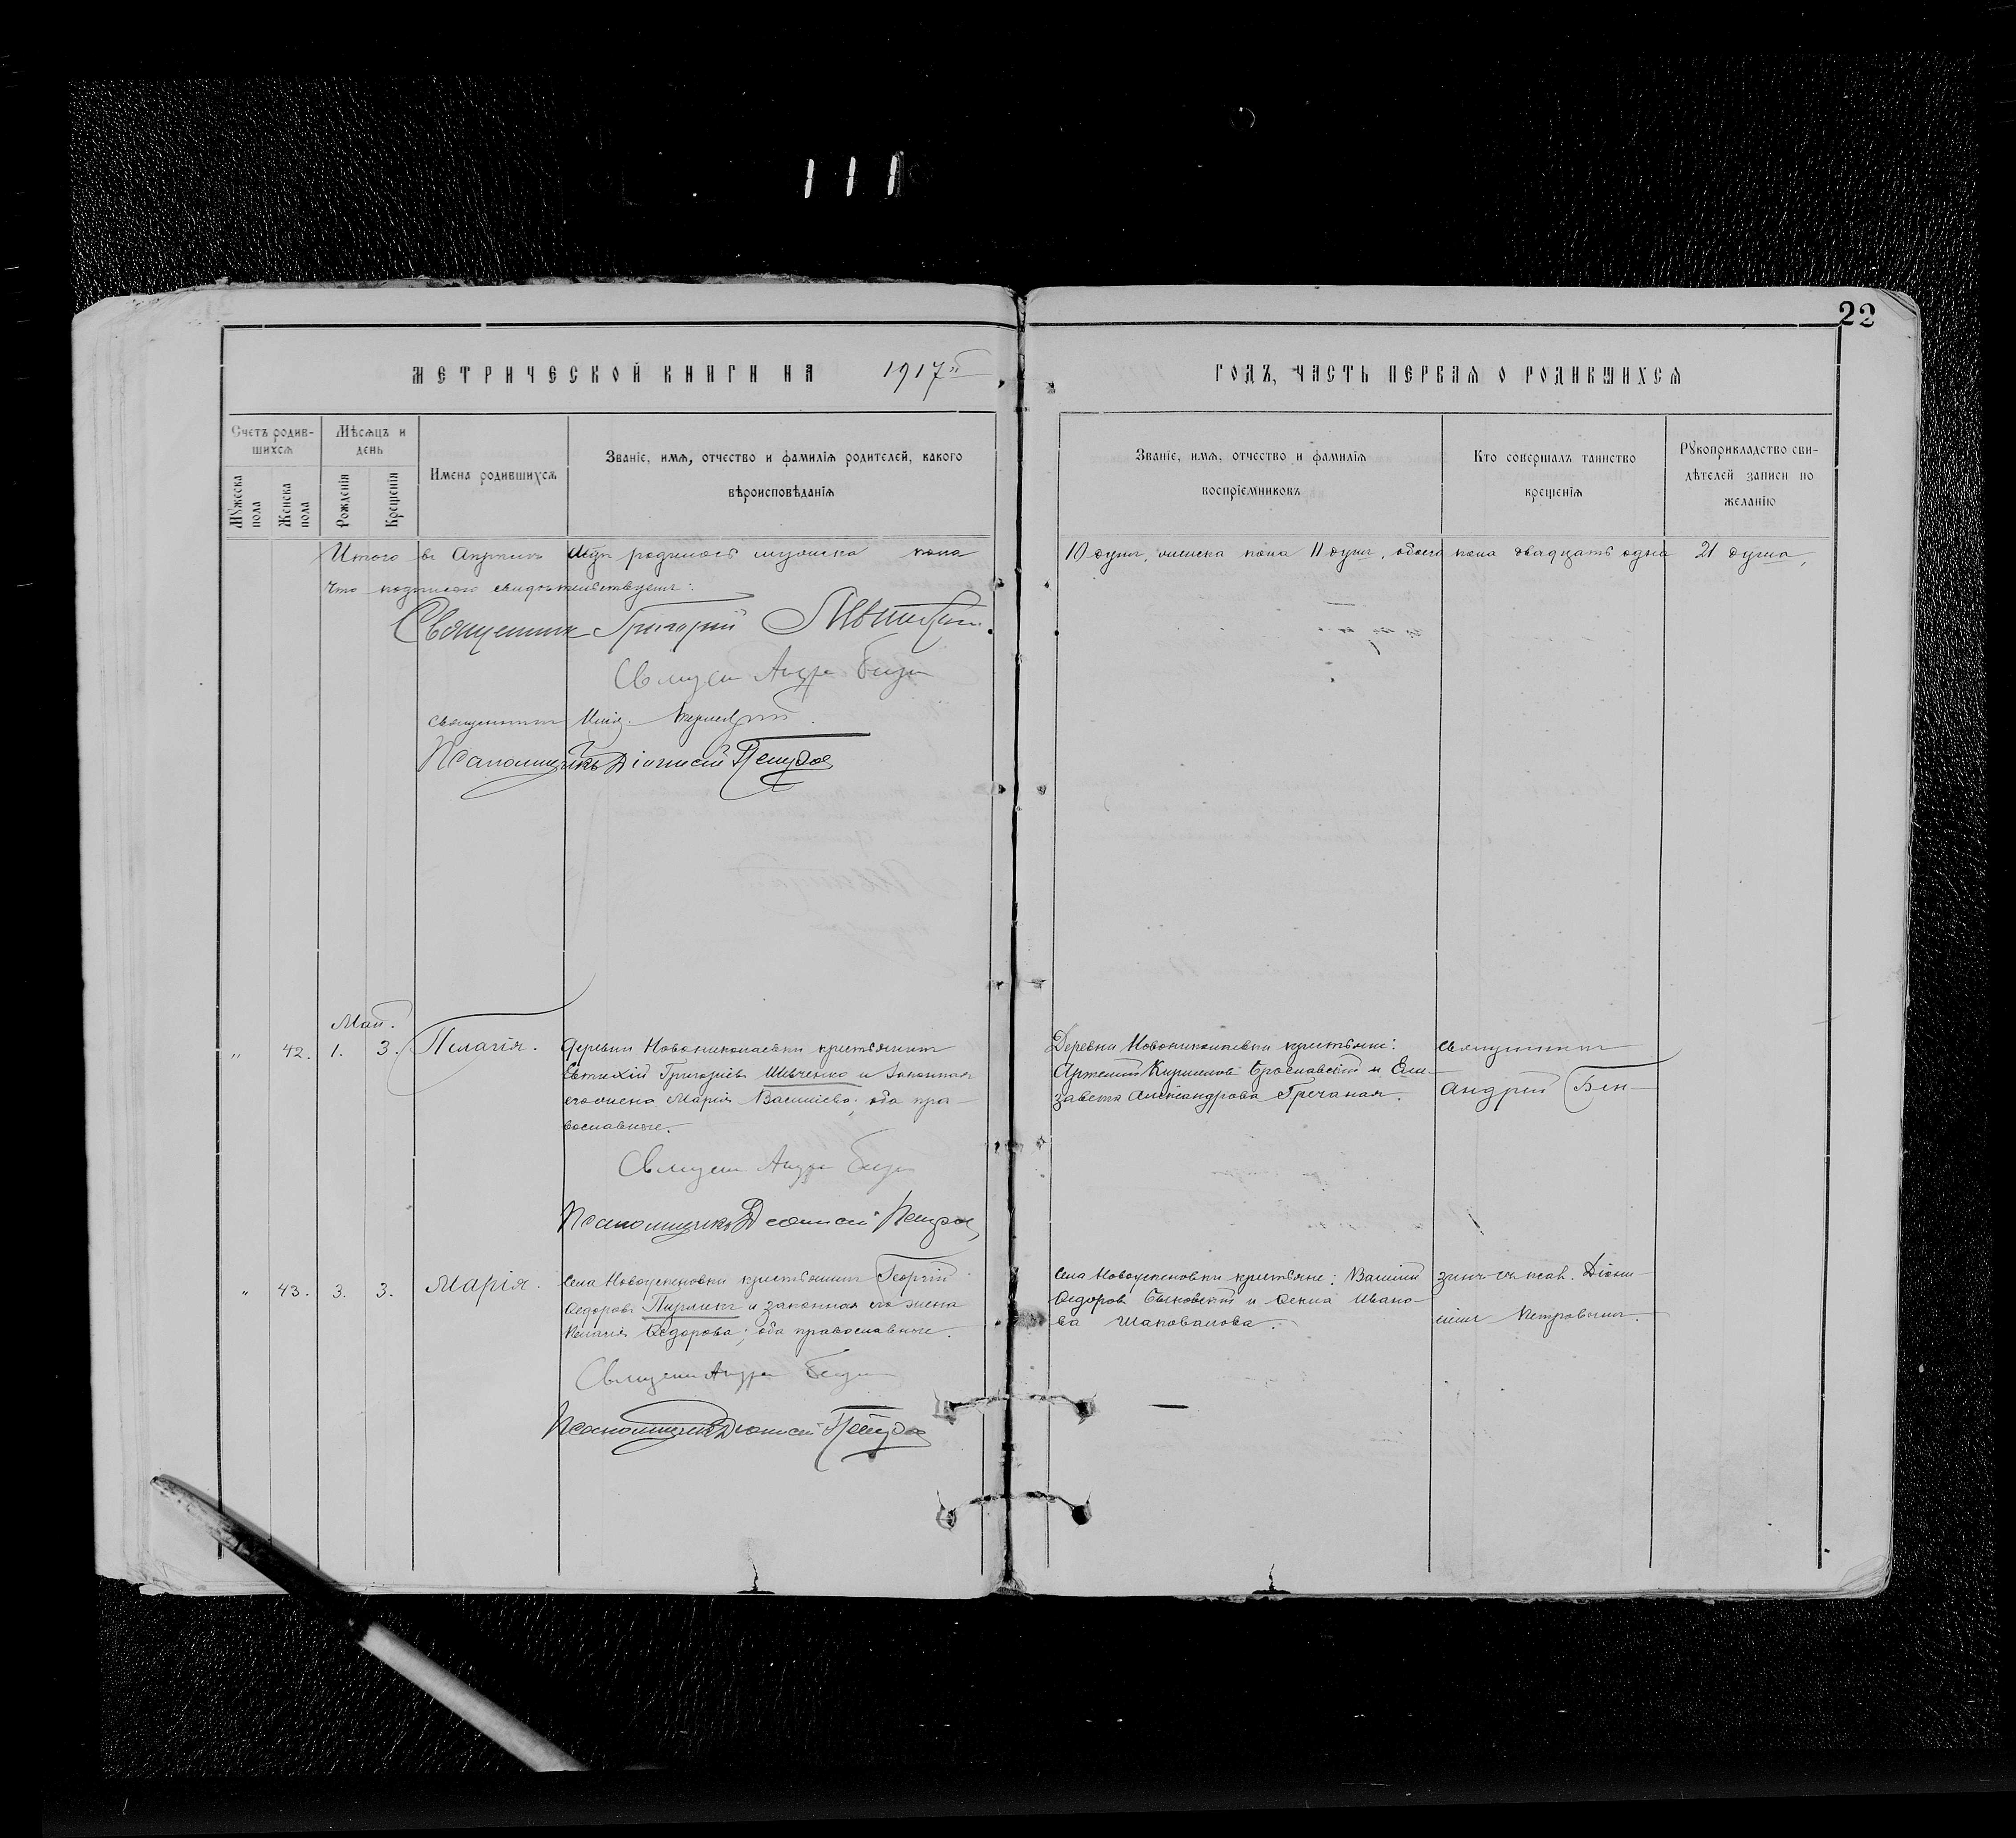 111
22
МЕТРИЧЕСКОЙ КНИГИ НА 1917й ГОДЪ, ЧАСТЬ ПЕРВАЯ О РОДИВШИХСЯ
Счетъ родив-
шихся
Мѣсяцъ и
день
Мужеска
пола
Женска
пола
Рожденія
Крещенія
Имена родившихся
Званіе, имя, отчество и фамилія родителей, какого
вѣроисповѣданія
Званіе, имя, отчество и фамилія
воспріемниковъ
Кто совершалъ таинство
крещенія
Рукоприкладство сви-
дѣтелей записи по
желанію
Итого въ Апрѣлѣ родилось мужска пола 10 душъ, женска пола 11 душъ, обоего пола двадцать одна 21 душа,
Что подписью свидѣтельствуемъ:
Священникъ Григорій
Священ Андре
Священникъ
Псаломщикъ Діонисій
Май.
" 42. 1. 3. Пелагія.
Деревни Новониколаевки крестьянинъ
Евтихій Григоріевъ Шевченко и законная
его жена Марія Васильева, оба пра-
вославные.
Священ Андре
Псаломщикъ Діонисій
Деревни Новониколаевки крестьяне:
Артемій Кирилловъ Ерославскій и Ели-
завета Александрова Гречаная.
Священникъ
Андрей Бен-
" 43. 3. 3. Марія.
Села Новоуспеновки крестьянинъ Георгій
Ѳедоровъ Пирликъ и законная его жена
Пелагія Ѳедорова; оба православные.
Священ Андре
Псаломщикъ Діонисій
Села Новоуспеновки крестьяне: Василій
Ѳедоровъ Быковскій и Ѳекла Ивано-
ва Шаповалова.
зинъ съ псал. Діони-
сіемъ Петровымъ.